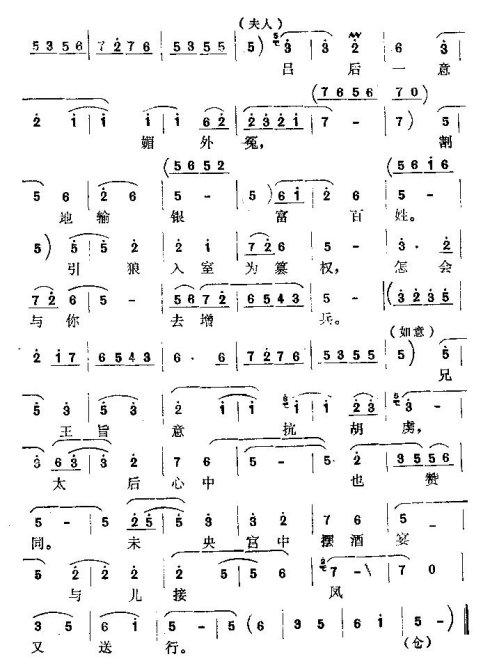 (夫人)
5356 | 7276 | 5355 | 5) 3 | 3 2 | 6 3 |
吕后一意
2 1 | 1 1 | 1 62 | 2321 | 7 - | 7) 5 |
(7656 | 70)
媚外冤，割
(5652
(5616
5 6 | 2 6 | 5 - | 5) 61 | 2 6 | 5 - |
地输银富百姓。
5) 5 | 5 2 | 2 1 | 72 6 | 5 - | 3· 2 |
引狼入室为篡权，怎会
72 6 | 5 - | 56 72 | 6543 | 5 - | (3235 |
与你去增兵。
(如意)
2 17 | 6543 | 6· 6 | 7276 | 5355 | 5) 5 |
兄
5 3 | 5 3 | 2 1 | 1 1 | 1 23 | 3 - |
王旨意抗胡虏，
3 63 | 3 2 | 7 6 | 5 - | 5· 2 | 3556 |
太后心中也赞
5 - | 5 - | 25 5 | 5 3 | 3 2 | 7 6 | 5 -
同。未央宫中摆酒宴
5 2 | 2 2 | 2 5 | 5 6 | 7 - | 7 0 |
与儿接风
3 5 | 6 1 | 5 - | 5 (6 | 3 5 | 6 1 | 5 - )‖
又送行。
(仓)